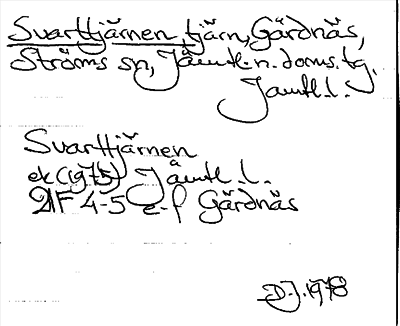 Svarttjärnen, tjärn, Gärdnäs,
Ströms sn, Jämtl. n. doms. tg.
Jämtl. l.
Svarttjärnen
ek (1975) Jämtl. l.
21F 4-5 e-f Gärdnäs
D.J. 1978